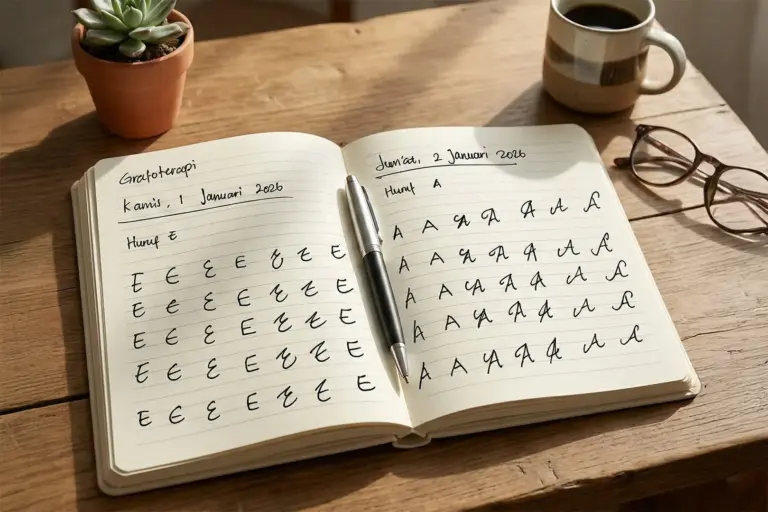 Grafoterapi
Kamis, 1 Januari 2026
Huruf E
E E E E E E E
E E E E E E E
E E E E E E E
E E E E E E E
E E E E E E E
Jum'at, 2 Januari 2026
Huruf A
A A A A A A A
A A A A A A A
A A A A A A A
A A A A A A A
A A A A A A A